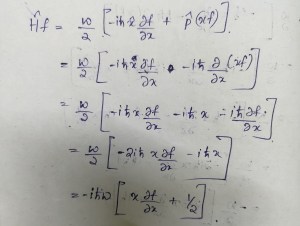 Ĥf = ω/2 [-iħx ∂f/∂x + p̂(xf)]
= ω/2 [-iħx ∂f/∂x - iħ ∂/∂x (xf)]
= ω/2 [-iħx ∂f/∂x - iħx - iħ∂f/∂x]
= ω/2 [-2iħ x ∂f/∂x - iħx]
= -iħω [x ∂f/∂x + 1/2]